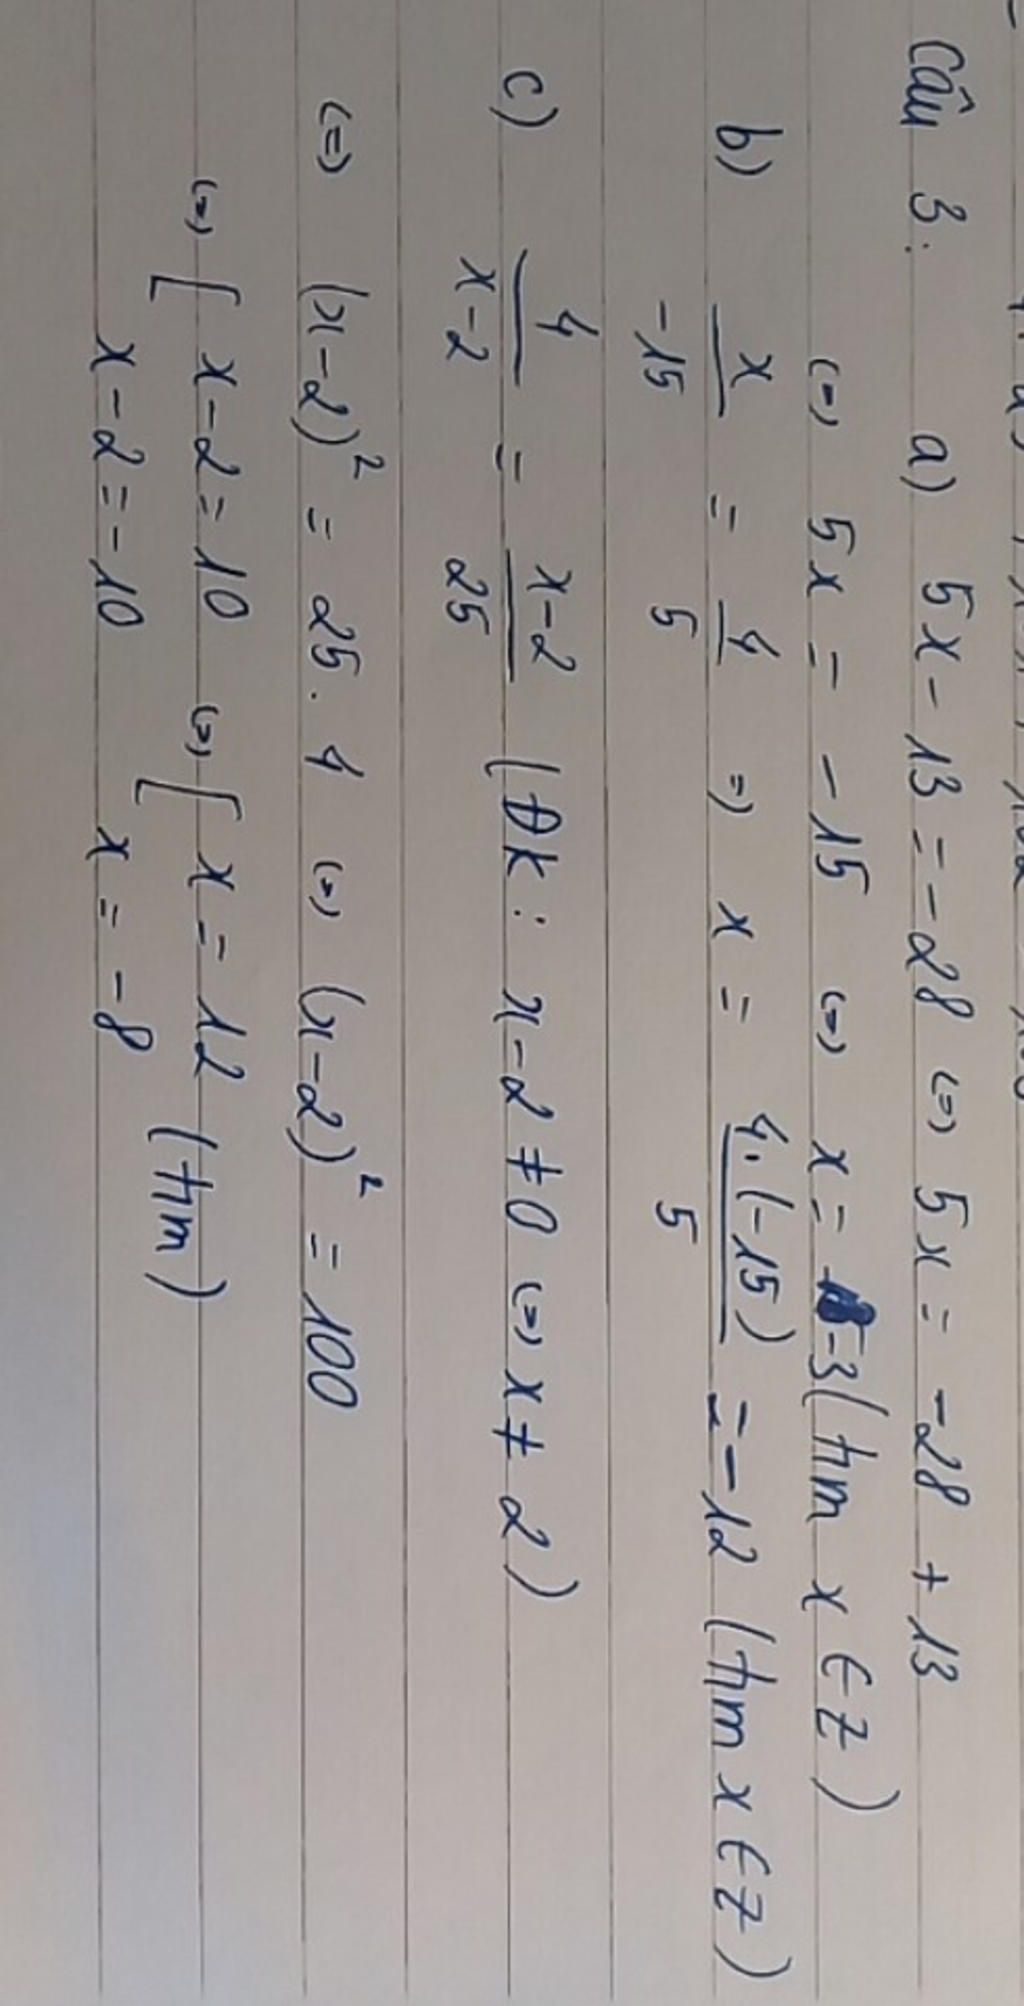 Câu 3: a) 5x - 13 = -28 <=> 5x = -28 + 13
<=> 5x = -15 <=> x = -3 (tm x ∈ Z)
b) x/-15 = 4/5 => x = 4.(-15)/5 = -12 (tm x ∈ Z)
c) 4/x-2 = x-2/25 (ĐK: x-2 ≠ 0 <=> x ≠ 2)
<=> (x-2)² = 25.4 <=> (x-2)² = 100
<=> [ x-2 = 10 <=> [ x = 12 (tm)
x-2 = -10 x = -8